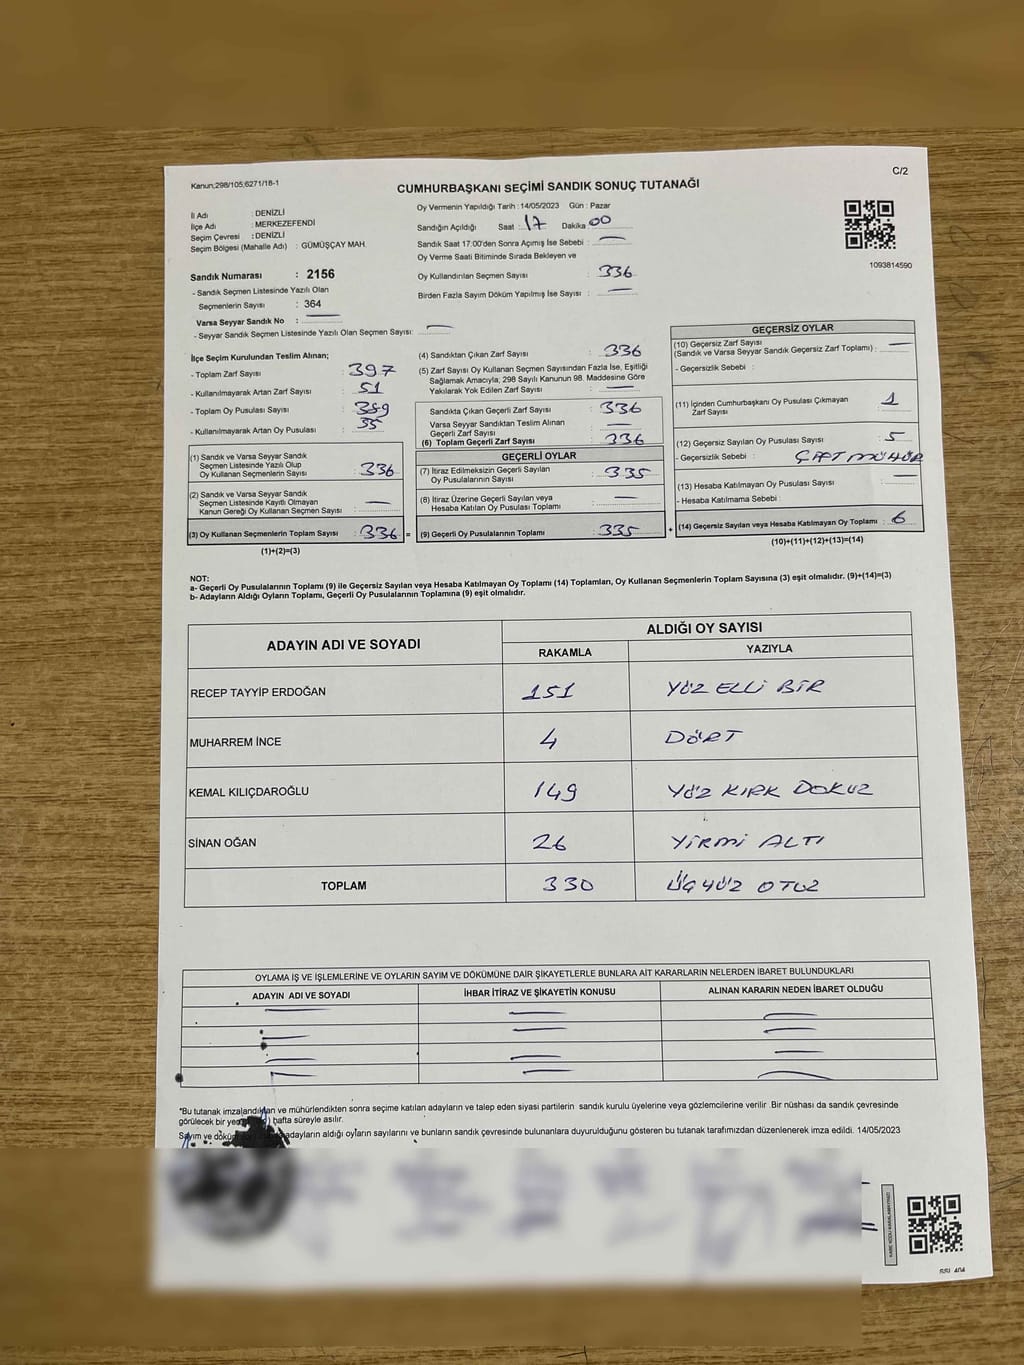 Kanun;298/105;6271/18-1
C/2
CUMHURBAŞKANI SEÇİMİ SANDIK SONUÇ TUTANAĞI
İl Adı : DENİZLİ
İlçe Adı : MERKEZEFENDİ
Seçim Çevresi : DENİZLİ
Seçim Bölgesi (Mahalle Adı) : GÜMÜŞÇAY MAH.
Sandık Numarası : 2156
- Sandık Seçmen Listesinde Yazılı Olan
Seçmenlerin Sayısı : 364
Varsa Seyyar Sandık No :
- Seyyar Sandık Seçmen Listesinde Yazılı Olan Seçmen Sayısı:
Oy Vermenin Yapıldığı Tarih : 14/05/2023 Gün : Pazar
Sandığın Açıldığı Saat : 17 Dakika : 00
Sandık Saat 17:00'den Sonra Açımış İse Sebebi : —
Oy Verme Saati Bitiminde Sırada Bekleyen ve
Oy Kullandırılan Seçmen Sayısı : 336
Birden Fazla Sayım Döküm Yapılmış İse Sayısı : —
1093814590
İlçe Seçim Kurulundan Teslim Alınan;
- Toplam Zarf Sayısı : 397
- Kullanılmayarak Artan Zarf Sayısı : 51
- Toplam Oy Pusulası Sayısı : 389
- Kullanılmayarak Artan Oy Pusulası : 35
(1) Sandık ve Varsa Seyyar Sandık
Seçmen Listesinde Yazılı Olup
Oy Kullanan Seçmenlerin Sayısı : 336
(2) Sandık ve Varsa Seyyar Sandık
Seçmen Listesinde Kayıtlı Olmayan
Kanun Gereği Oy Kullanan Seçmen Sayısı : —
(3) Oy Kullanan Seçmenlerin Toplam Sayısı : 336 =
(1)+(2)=(3)
(4) Sandıktan Çıkan Zarf Sayısı : 336
(5) Zarf Sayısı Oy Kullanan Seçmen Sayısından Fazla İse, Eşitliği
Sağlamak Amacıyla, 298 Sayılı Kanunun 98. Maddesine Göre
Yakılarak Yok Edilen Zarf Sayısı : —
Sandıkta Çıkan Geçerli Zarf Sayısı : 336
Varsa Seyyar Sandıktan Teslim Alınan
Geçerli Zarf Sayısı : —
(6) Toplam Geçerli Zarf Sayısı : 336
GEÇERLİ OYLAR
(7) İtiraz Edilmeksizin Geçerli Sayılan
Oy Pusulalarının Sayısı : 335
(8) İtiraz Üzerine Geçerli Sayılan veya
Hesaba Katılan Oy Pusulası Toplamı : —
(9) Geçerli Oy Pusulalarının Toplamı : 335 +
GEÇERSİZ OYLAR
(10) Geçersiz Zarf Sayısı
(Sandık ve Varsa Seyyar Sandık Geçersiz Zarf Toplamı) : —
- Geçersizlik Sebebi :
(11) İçinden Cumhurbaşkanı Oy Pusulası Çıkmayan
Zarf Sayısı : 1
(12) Geçersiz Sayılan Oy Pusulası Sayısı : 5
- Geçersizlik Sebebi : ÇİFT MÜHÜR
(13) Hesaba Katılmayan Oy Pusulası Sayısı : —
- Hesaba Katılmama Sebebi :
(14) Geçersiz Sayılan veya Hesaba Katılmayan Oy Toplamı : 6
(10)+(11)+(12)+(13)=(14)
NOT:
a- Geçerli Oy Pusulalarının Toplamı (9) ile Geçersiz Sayılan veya Hesaba Katılmayan Oy Toplamı (14) Toplamları, Oy Kullanan Seçmenlerin Toplam Sayısına (3) eşit olmalıdır. (9)+(14)=(3)
b- Adayların Aldığı Oyların Toplamı, Geçerli Oy Pusulalarının Toplamına (9) eşit olmalıdır.
ADAYIN ADI VE SOYADI ALDIĞI OY SAYISI
RAKAMLA YAZIYLA
RECEP TAYYİP ERDOĞAN 151 YÜZ ELLİ BİR
MUHARREM İNCE 4 DÖRT
KEMAL KILIÇDAROĞLU 149 YÜZ KIRK DOKUZ
SİNAN OĞAN 26 YİRMİ ALTI
TOPLAM 330 ÜÇ YÜZ OTUZ
OYLAMA İŞ VE İŞLEMLERİNE VE OYLARIN SAYIM VE DÖKÜMÜNE DAİR ŞİKAYETLERLE BUNLARA AİT KARARLARIN NELERDEN İBARET BULUNDUKLARI
ADAYIN ADI VE SOYADI İHBAR İTİRAZ VE ŞİKAYETİN KONUSU ALINAN KARARIN NEDEN İBARET OLDUĞU
*Bu tutanak imzalandıktan ve mühürlendikten sonra seçime katılan adayların ve talep eden siyasi partilerin sandık kurulu üyelerine veya gözlemcilerine verilir .Bir nüshası da sandık çevresinde
görülecek bir yere hafta süreyle asılır.
Sayım ve döküm adayların aldığı oyların sayılarını ve bunların sandık çevresinde bulunanlara duyurulduğunu gösteren bu tutanak tarafımızdan düzenlenerek imza edildi. 14/05/2023